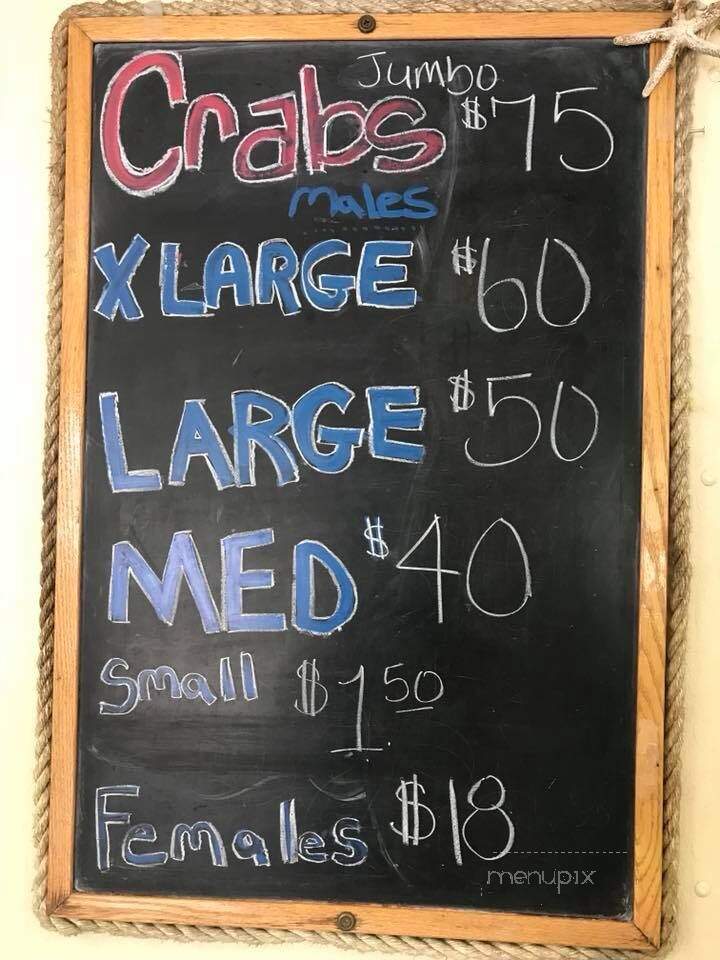 Jumbo
Crabs $75
Males
X LARGE $60
LARGE $50
MED $40
Small $1.50
Females $18
menupix